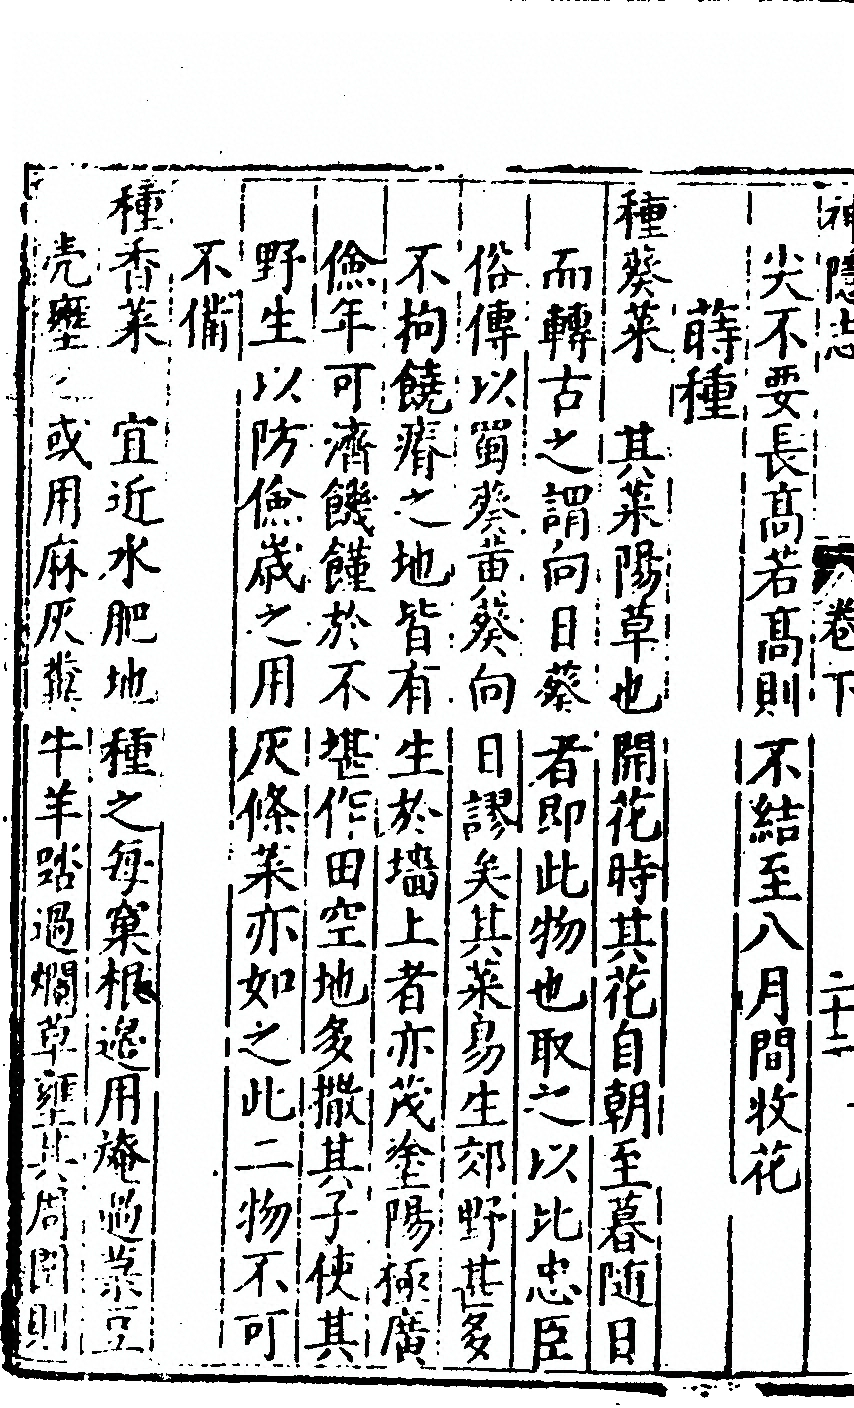 神隱志 卷下 二十二
尖不要長髙若髙則不結至八月間收花
蒔種
種葵菜 其菜陽草也開花時其花自朝至暮随日
而轉古之謂向日葵者即此物也取之以比忠臣
俗傳以蜀葵黄葵向日謬矣其菜易生郊野甚多
不拘饒瘠之地皆有生於墻上者亦茂塗陽極廣
儉年可濟饑饉於不堪作田空地多撒其子使其
野生以防儉歳之用灰條菜亦如之此二物不可
不備
種香菜 宜近水肥地種之每窠根邉用庵過菉豆
壳壅之或用麻灰糞牛羊踏過爛草壅其周圍則